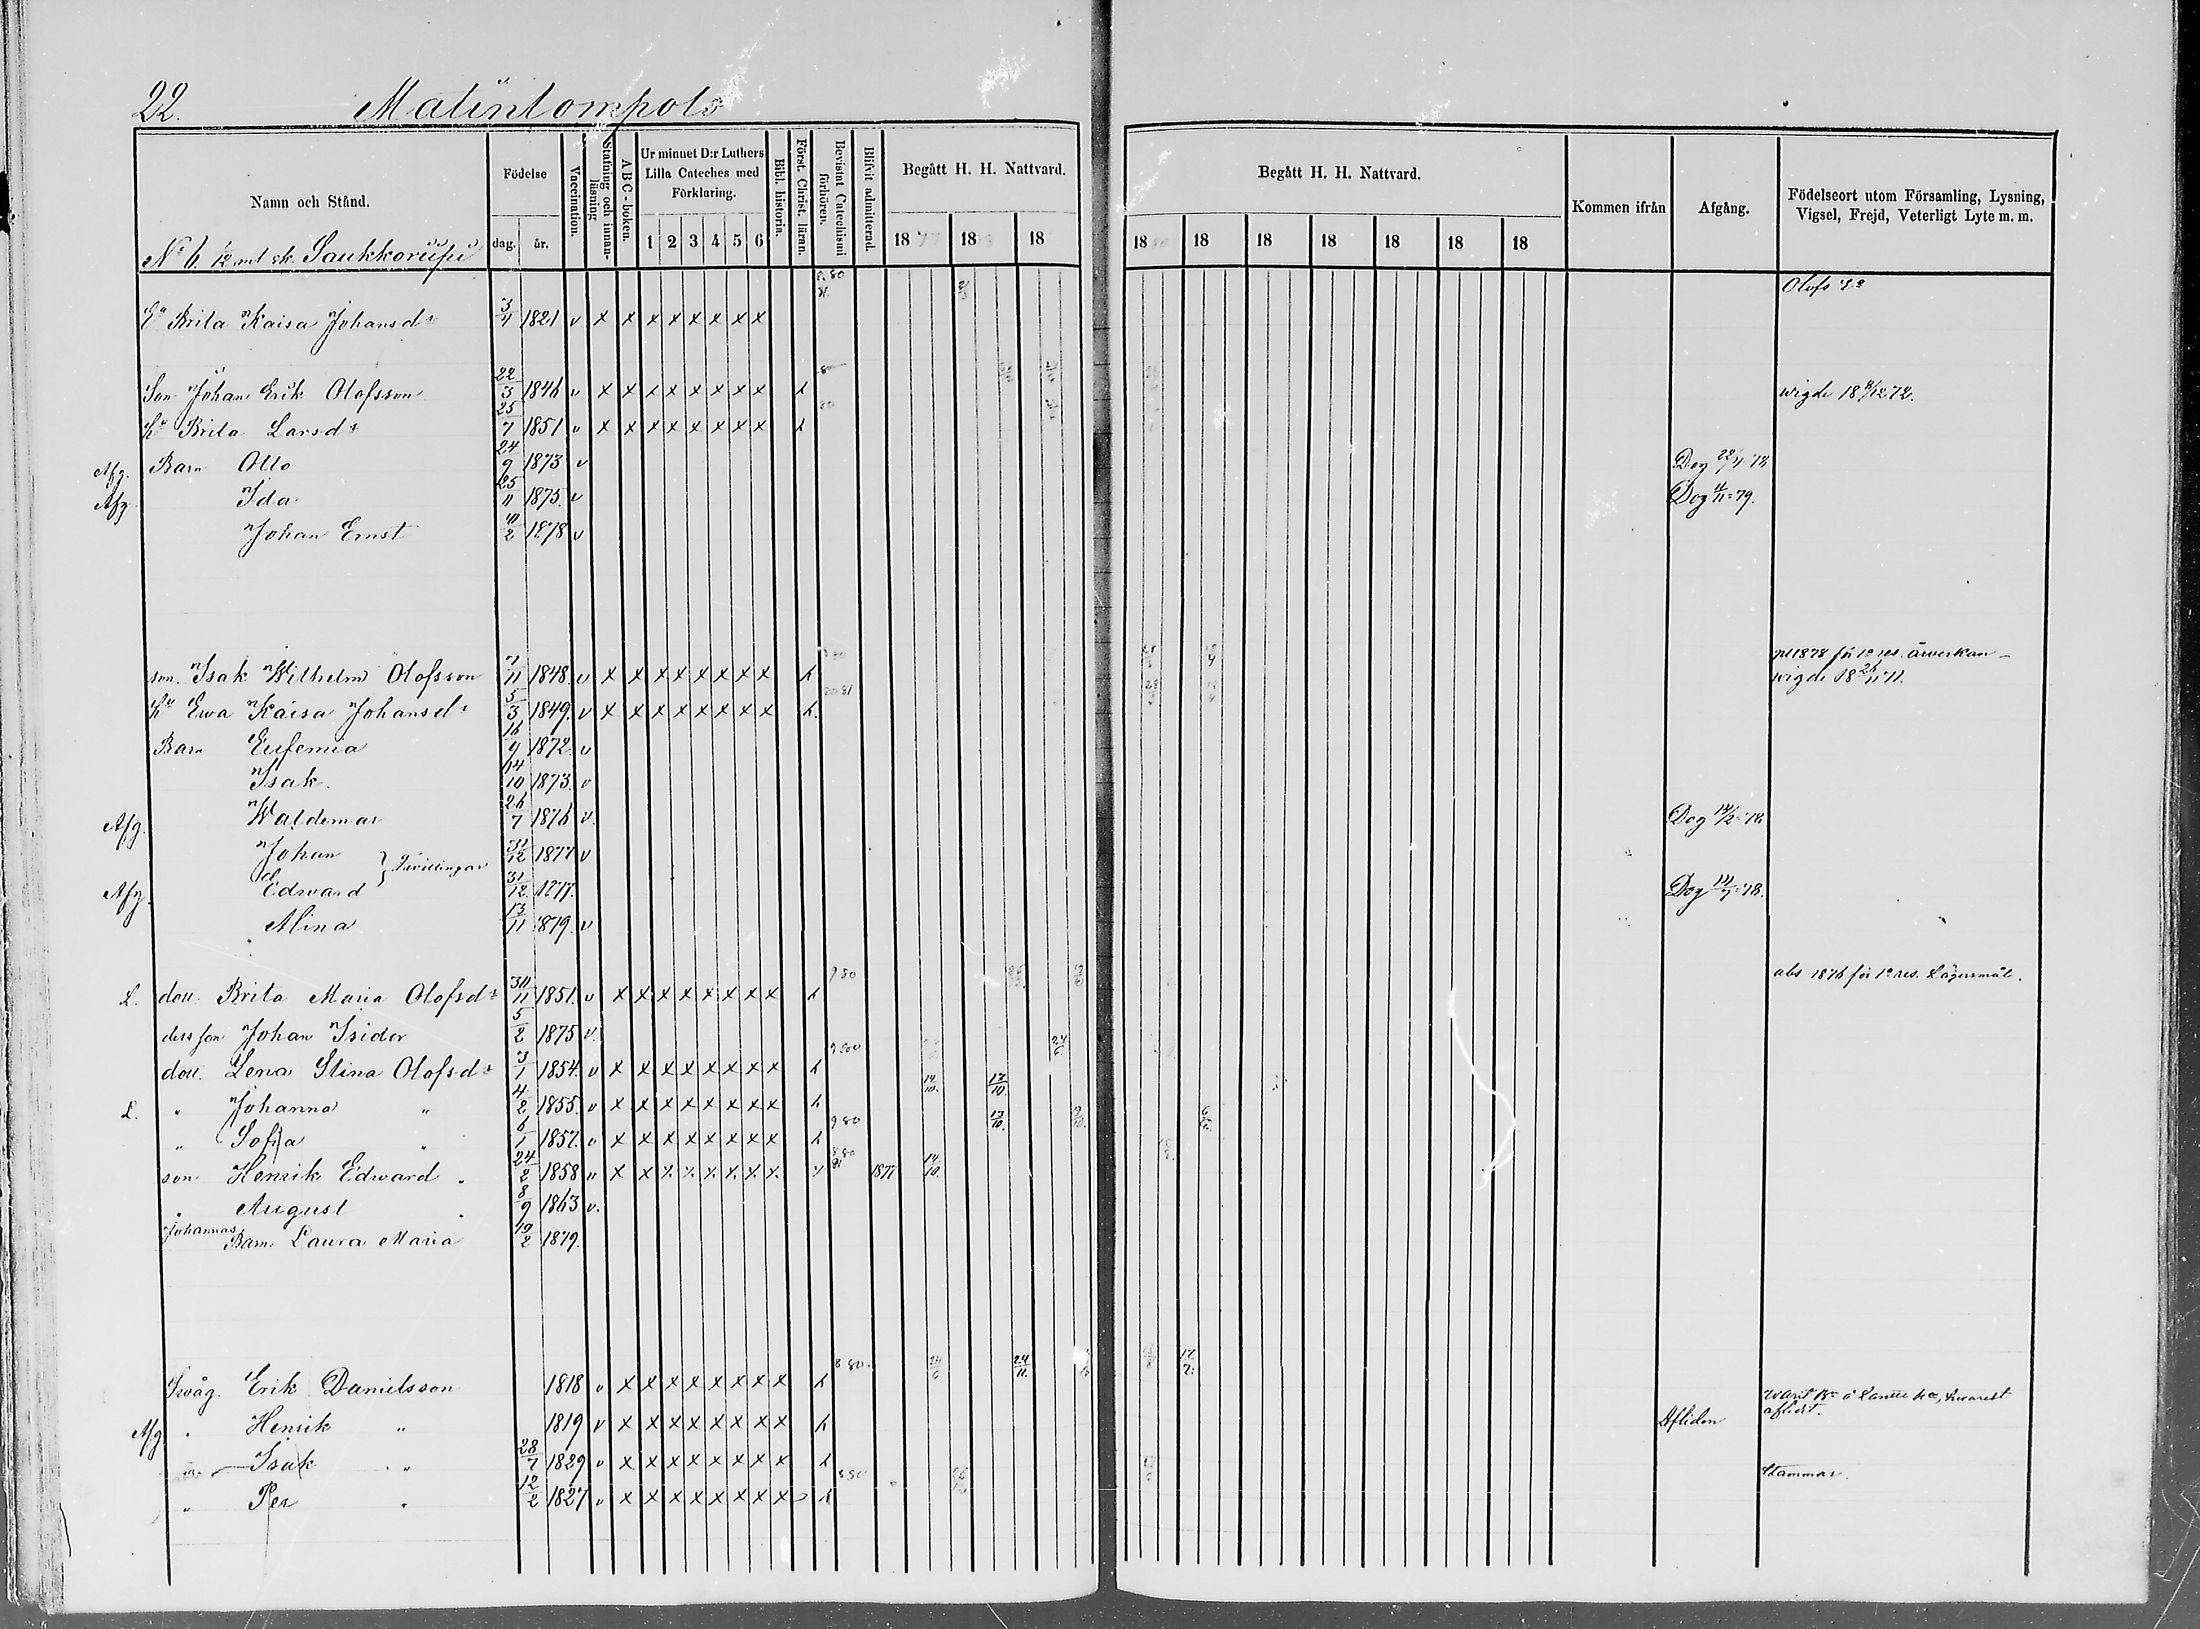 22.
Matintompolo
Namn och Stånd.
Födelse
dag.
år.
Vaccination.
Stafning och innan-läsning
ABC-boken.
Ur minnet D:r Luthers
Lilla Cateches med
Förklaring.
1 2 3 4 5 6
Bibl. historia.
Först. Christ. läran.
Bevistat Catechismi förhören.
Blifvit admitterad.
Begått H. H. Nattvard.
18 77 18 18
Begått H. H. Nattvard.
18 18 18 18 18 18 18
Kommen ifrån
Afgång.
Födelseort utom Församling, Lysning,
Vigsel, Frejd, Veterligt Lyte m. m.
No 6. 1/12 mtl sk. Saukkoriipi
Brita Kaisa Johansdr 3/4 1821 v x x x x x x x x Olofs
Son Johan Erik Olofsson 22/3 1846 v x x x x x x x x wigde 18 72.
Hu Brita Larsdr 25/7 1851 v x x x x x x x x
Afg. Barn Otto 24/9 1873 v Dog
Afg Ida 25/11 1875. v Dog 79.
Johan Ernst 10/2 1878 v
son. Isak Wilhelm Olofsson 7/11 1848 v x x x x x x x x 1878 för 1a res. åwerkan
wigde 18 71.
Hu Ewa Kaisa Johansdr 5/3 1849. v x x x x x x x x
Barn Eufemia 16/9 1872 v
Isak. 14/10 1873. v
Afg. Waldemar 26/7 1876 v. Dog 78
Johan 31/12 1877 v
} Twillingar
Afg. Edward 31/12 1877. Dog 78.
Alina 13/11 1879. v
L. dott. Brita Maria Olofsdr 30/11 1851. v x x x x x x x x 9 80 abs 1876 för 1a res. Lägersmål.
dess son Johan Isidor 5/2 1875 v.
dott. Lena Stina Olofsdr 3/1 1854. v x x x x x x x x 24/6
L. " Johanna " 4/2 1855. v x x x x x x x x 14/10. 17/10
" Sofia " 6/1 1857. v x x x x x x x x 9 80 17/10.
son Henrik Edward " 24/2 1858 v x x 1877 14/10.
" August " 8/9 1863 v.
Johannas
Barn Laura Maria 19/2 1879.
Swåg. Erik Danielsson 1818 v x x x x x x x x 8 80. 24/6 24/11. 17/7.
Afg " Henrik " 1819 v x x x x x x x x Afliden
aflidit.
Isak " 28/7 1829 v x x x x x x x x
" Per " 12/2 1827 v x x x x x x x x Stammar.